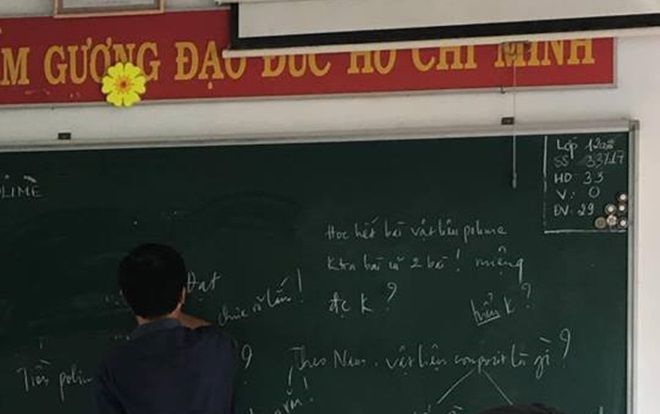 ẤM GƯƠNG ĐẠO ĐỨC HỒ CHÍ MINH
OLIME
Lớp 12a2
SS 33
HD 33
V: 0
ĐV: 29
Học hết bài vật liệu polime
Ktra bài cũ 2 bài! miệng
đc k?
hiểu k?
Đạt
chưa rõ lắm!
Tiền polim
?
Theo Nam, vật liệu compozit là gì?